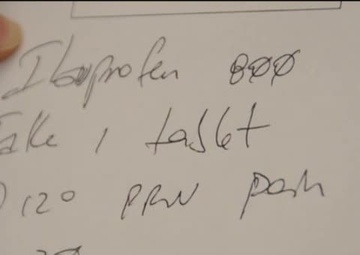 Ibuprofen 800
Take 1 tablet
120 PRN pain